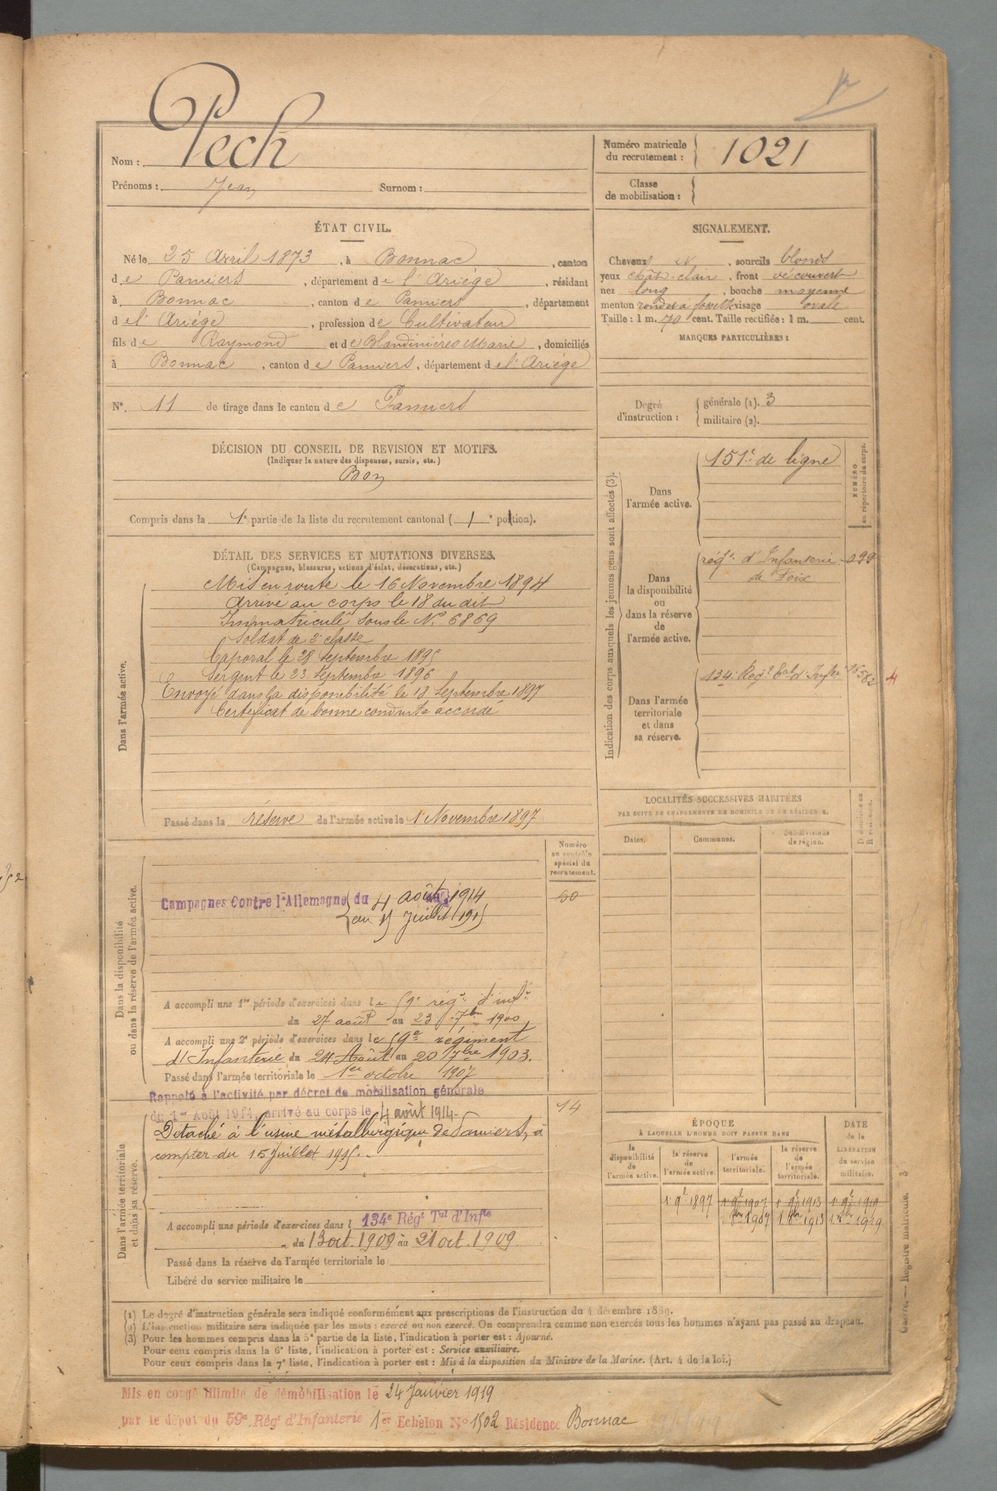 Pech
Nom :
Numéro matricule
du recrutement :
1021
Prénoms : Jean Surnom :
Classe
de mobilisation :
ÉTAT CIVIL.
Né le 25 Avril 1873, à Bonnac, canton
de Pamiers, département de l'Ariège, résidant
à Bonnac, canton de Pamiers, département
de l'Ariège, profession de Cultivateur
fils de Raymond et de Blandinières Marie, domiciliés
à Bonnac, canton de Pamiers, département de l'Ariège
N° 11 de tirage dans le canton de Pamiers
SIGNALEMENT.
Cheveux N, sourcils blonds
yeux chât-clair, front découvert
nez long, bouche moyenne
menton rond à fossette visage ovale
Taille : 1 m. 70 cent. Taille rectifiée : 1 m. cent.
MARQUES PARTICULIÈRES :
Degré
d'instruction :
générale (1). 3
militaire (2).
DÉCISION DU CONSEIL DE REVISION ET MOTIFS.
(Indiquer la nature des dispenses, sursis, etc.)
Bon
Compris dans la 1e partie de la liste du recrutement cantonal ( 1e portion).
DÉTAIL DES SERVICES ET MUTATIONS DIVERSES.
(Campagnes, blessures, actions d'éclat, décorations, etc.)
Dans l'armée active.
Mis en route le 16 Novembre 1894
Arrivé au corps le 18 du dit
Immatriculé sous le N° 6869
Soldat de 2e classe
Caporal le 28 septembre 1895
Sergent le 23 Septembre 1896
Envoyé dans la disponibilité le 18 Septembre 1897
Certificat de bonne conduite accordé
Passé dans la réserve de l'armée active le 1 Novembre 1897
Indication des corps auxquels les jeunes gens sont affectés (3).
NUMÉRO
au répertoire du corps.
Dans
l'armée active.
151e de ligne
Dans
la disponibilité
ou
dans la réserve
de
l'armée active.
régt d'Infanterie 299
de Foix
Dans l'armée
territoriale
et dans
sa réserve.
134 Régt Tal d'Infie
LOCALITÉS SUCCESSIVES HABITÉES
PAR SUITE DE CHANGEMENTS DE DOMICILE OU DE RÉSIDENCE.
Dates.
Communes.
Subdivisions
de région.
Numéro
au contrôle
spécial du
recrutement.
60
Dans la disponibilité
ou dans la réserve de l'armée active.
Campagnes Contre l'Allemagne du 4 août 1914
au 15 Juillet 1915
A accompli une 1re période d'exercices dans le 59e régt d'inf.
du 27 août au 23 7bre 1900
A accompli une 2e période d'exercices dans le 59e régiment
d'Infanterie du 24 Août au 20 7bre 1903.
Passé dans l'armée territoriale le 1er octobre 1907
Dans l'armée territoriale
et dans sa réserve.
Rappelé à l'activité par décret de mobilisation générale
du 1er Août 1914, arrivé au corps le 4 août 1914.
14
Détaché à l'usine métallurgique de Pamiers, à
compter du 15 Juillet 1915.
A accompli une période d'exercices dans l 134e Régt Tal d'Infie
du 13 oct. 1909 au 21 oct. 1909
Passé dans la réserve de l'armée territoriale le
Libéré du service militaire le
ÉPOQUE
À LAQUELLE L'HOMME DOIT PASSER DANS
DATE
de la
LIBÉRATION
du service
militaire.
la
disponibilité
de
l'armée active.
la réserve
de
l'armée active
l'armée
territoriale.
la réserve
de
l'armée
territoriale.
1 9t 1897 1 9t 1907 1 9t 1913 1 9t 1919
1907 1913 1919
(1) Le degré d'instruction générale sera indiqué conformément aux prescriptions de l'instruction du 4 décembre 1889.
(2) L'instruction militaire sera indiquée par les mots : exercé ou non exercé. On comprendra comme non exercés tous les hommes n'ayant pas passé au drapeau.
(3) Pour les hommes compris dans la 5e partie de la liste, l'indication à porter est : Ajourné.
Pour ceux compris dans la 6e liste, l'indication à porter est : Service auxiliaire.
Pour ceux compris dans la 7e liste, l'indication à porter est : Mis à la disposition du Ministre de la Marine. (Art. 4 de la loi.)
Mis en congé illimité de démobilisation le 24 Janvier 1919
par le dépôt du 59e Régt d'Infanterie 1er Echelon N° 1502 Résidence Bonnac